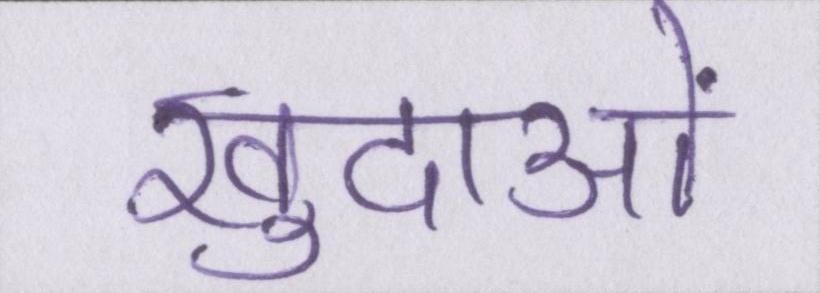 खुदाओं